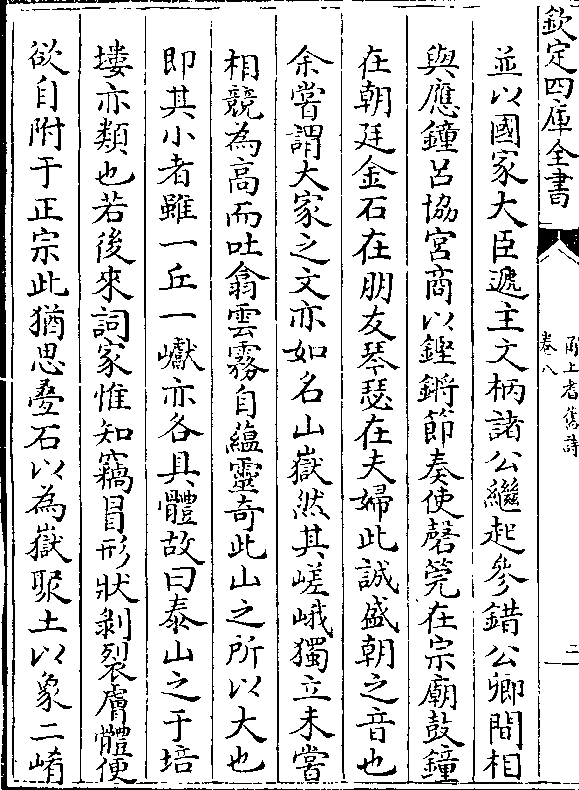 欽定四庫全書
甬上耆舊詩
卷八
二
並以國家大臣遞主文柄諸公繼起參錯公卿間相
與應鐘呂協宮商以鏗鏘節奏使磬筦在宗廟鼓鐘
在朝廷金石在朋友琴瑟在夫婦此誠盛朝之音也
余嘗謂大家之文亦如名山嶽然其嵯峨獨立未嘗
相競為高而吐翕雲霧自蘊靈奇此山之所以大也
即其小者雖一丘一巘亦各具體故曰泰山之于培
塿亦類也若後來詞家惟知竊冒形狀剝裂膚體便
欲自附于正宗此猶思疊石以為嶽聚土以象二崤